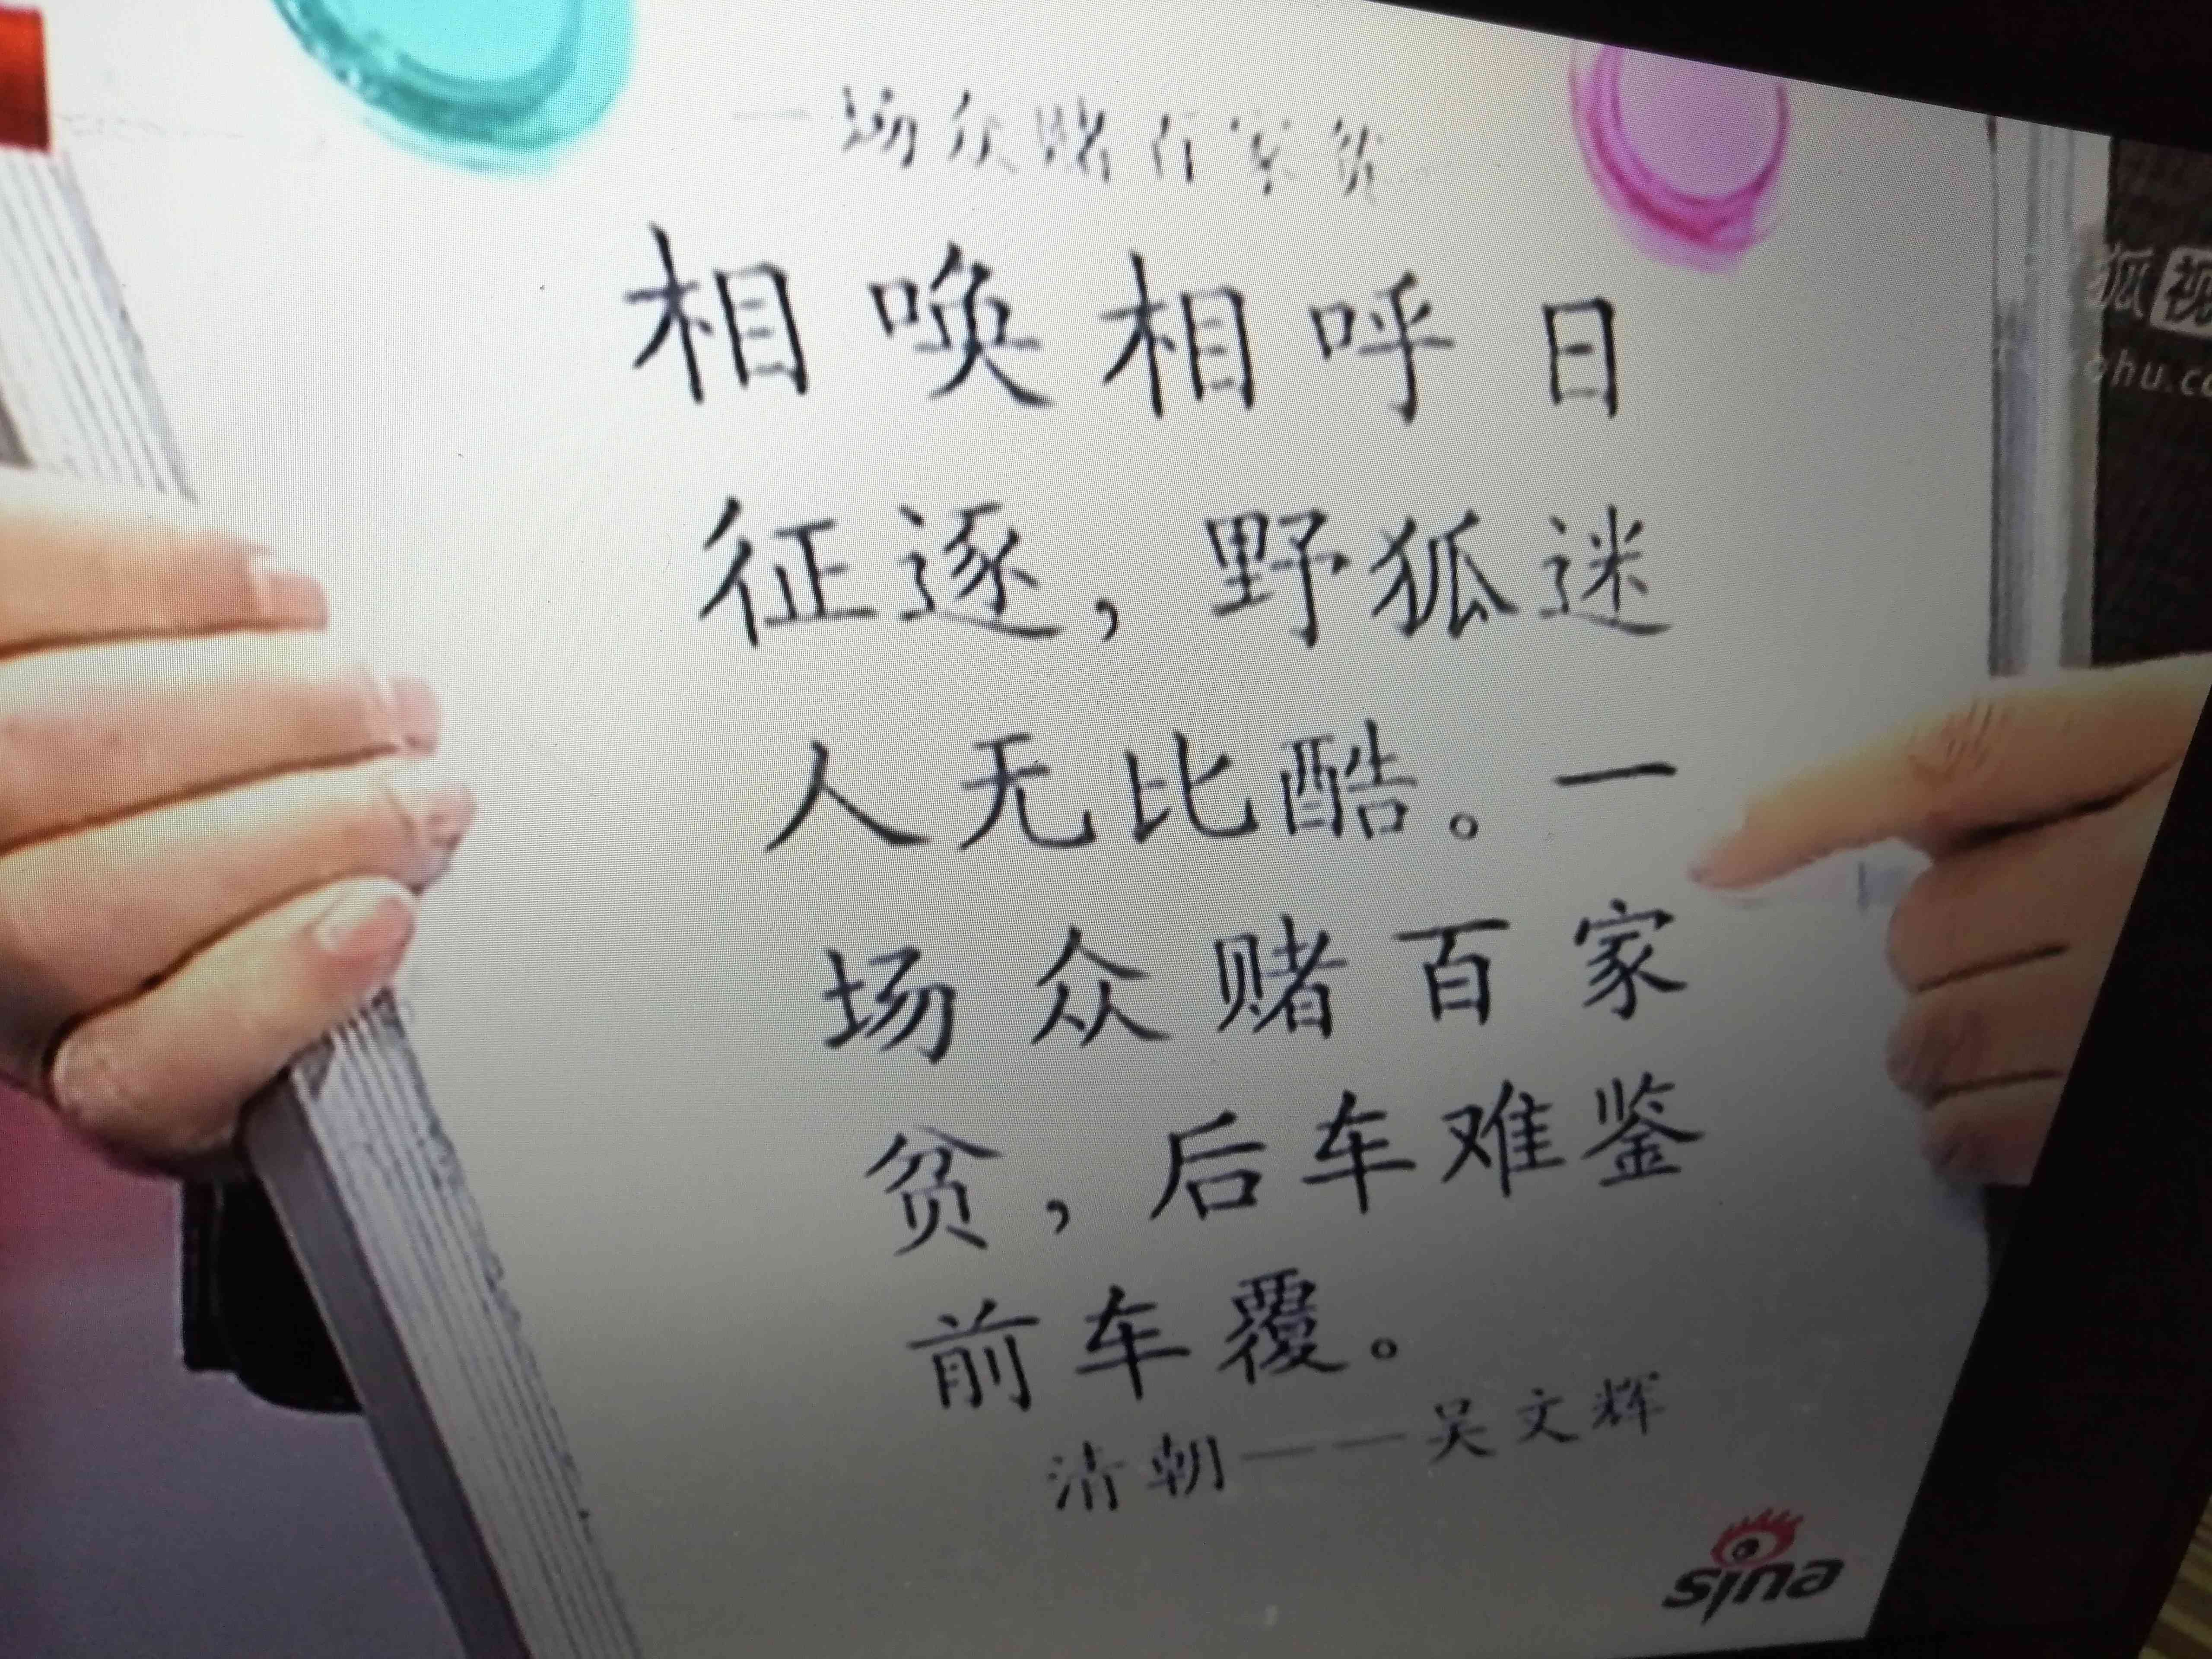 一场众赌百家贫
相唤相呼日
征逐，野狐迷
人无比酷。一
场众赌百家
贫，后车难鉴
前车覆。
清朝——吴文辉
sina
狐视
ohu.co